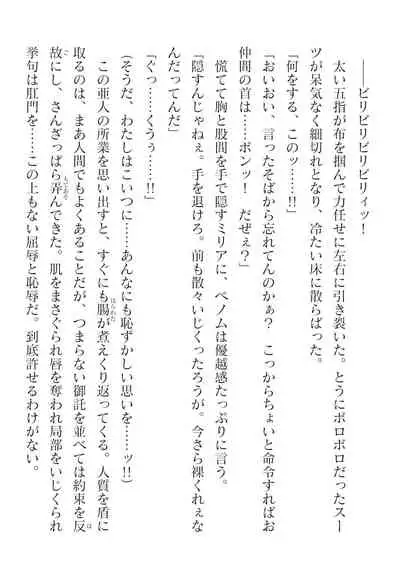 ――ビリビリビリビリィッ！
太い五指が布を掴んで力任せに左右に引き裂いた。とうにボロボロだったスー
ツが呆気なく細切れとなり、冷たい床に散らばった。
「何をする、このッ……!!」
「おいおい、言ったそばから忘れてんのかぁ？　こっからちょいと命令すればお
仲間の首は……ボンッ！　だぜぇ？」
慌てて胸と股間を手で隠すミリアに、ベノムは優越感たっぷりに言う。
「隠すんじゃねぇ。手を退けろ。前も散々いじくったろうが。今さら裸くれぇな
んだってんだ」
「ぐっ……くうぅ……!!」
（そうだ、わたしはこいつに……あんなにも恥ずかしい思いを……ッ!!）
この亜人の所業を思い出すと、すぐにも腸が煮えくり返ってくる。人質を盾に
取るのは、まあ人間でもよくあることだが、つまらない御託を並べては約束を反
故にし、さんざっぱら弄んできた。肌をまさぐられ唇を奪われ局部をいじくられ
挙句は肛門を……この上もない屈辱と恥辱だ。到底許せるわけがない。